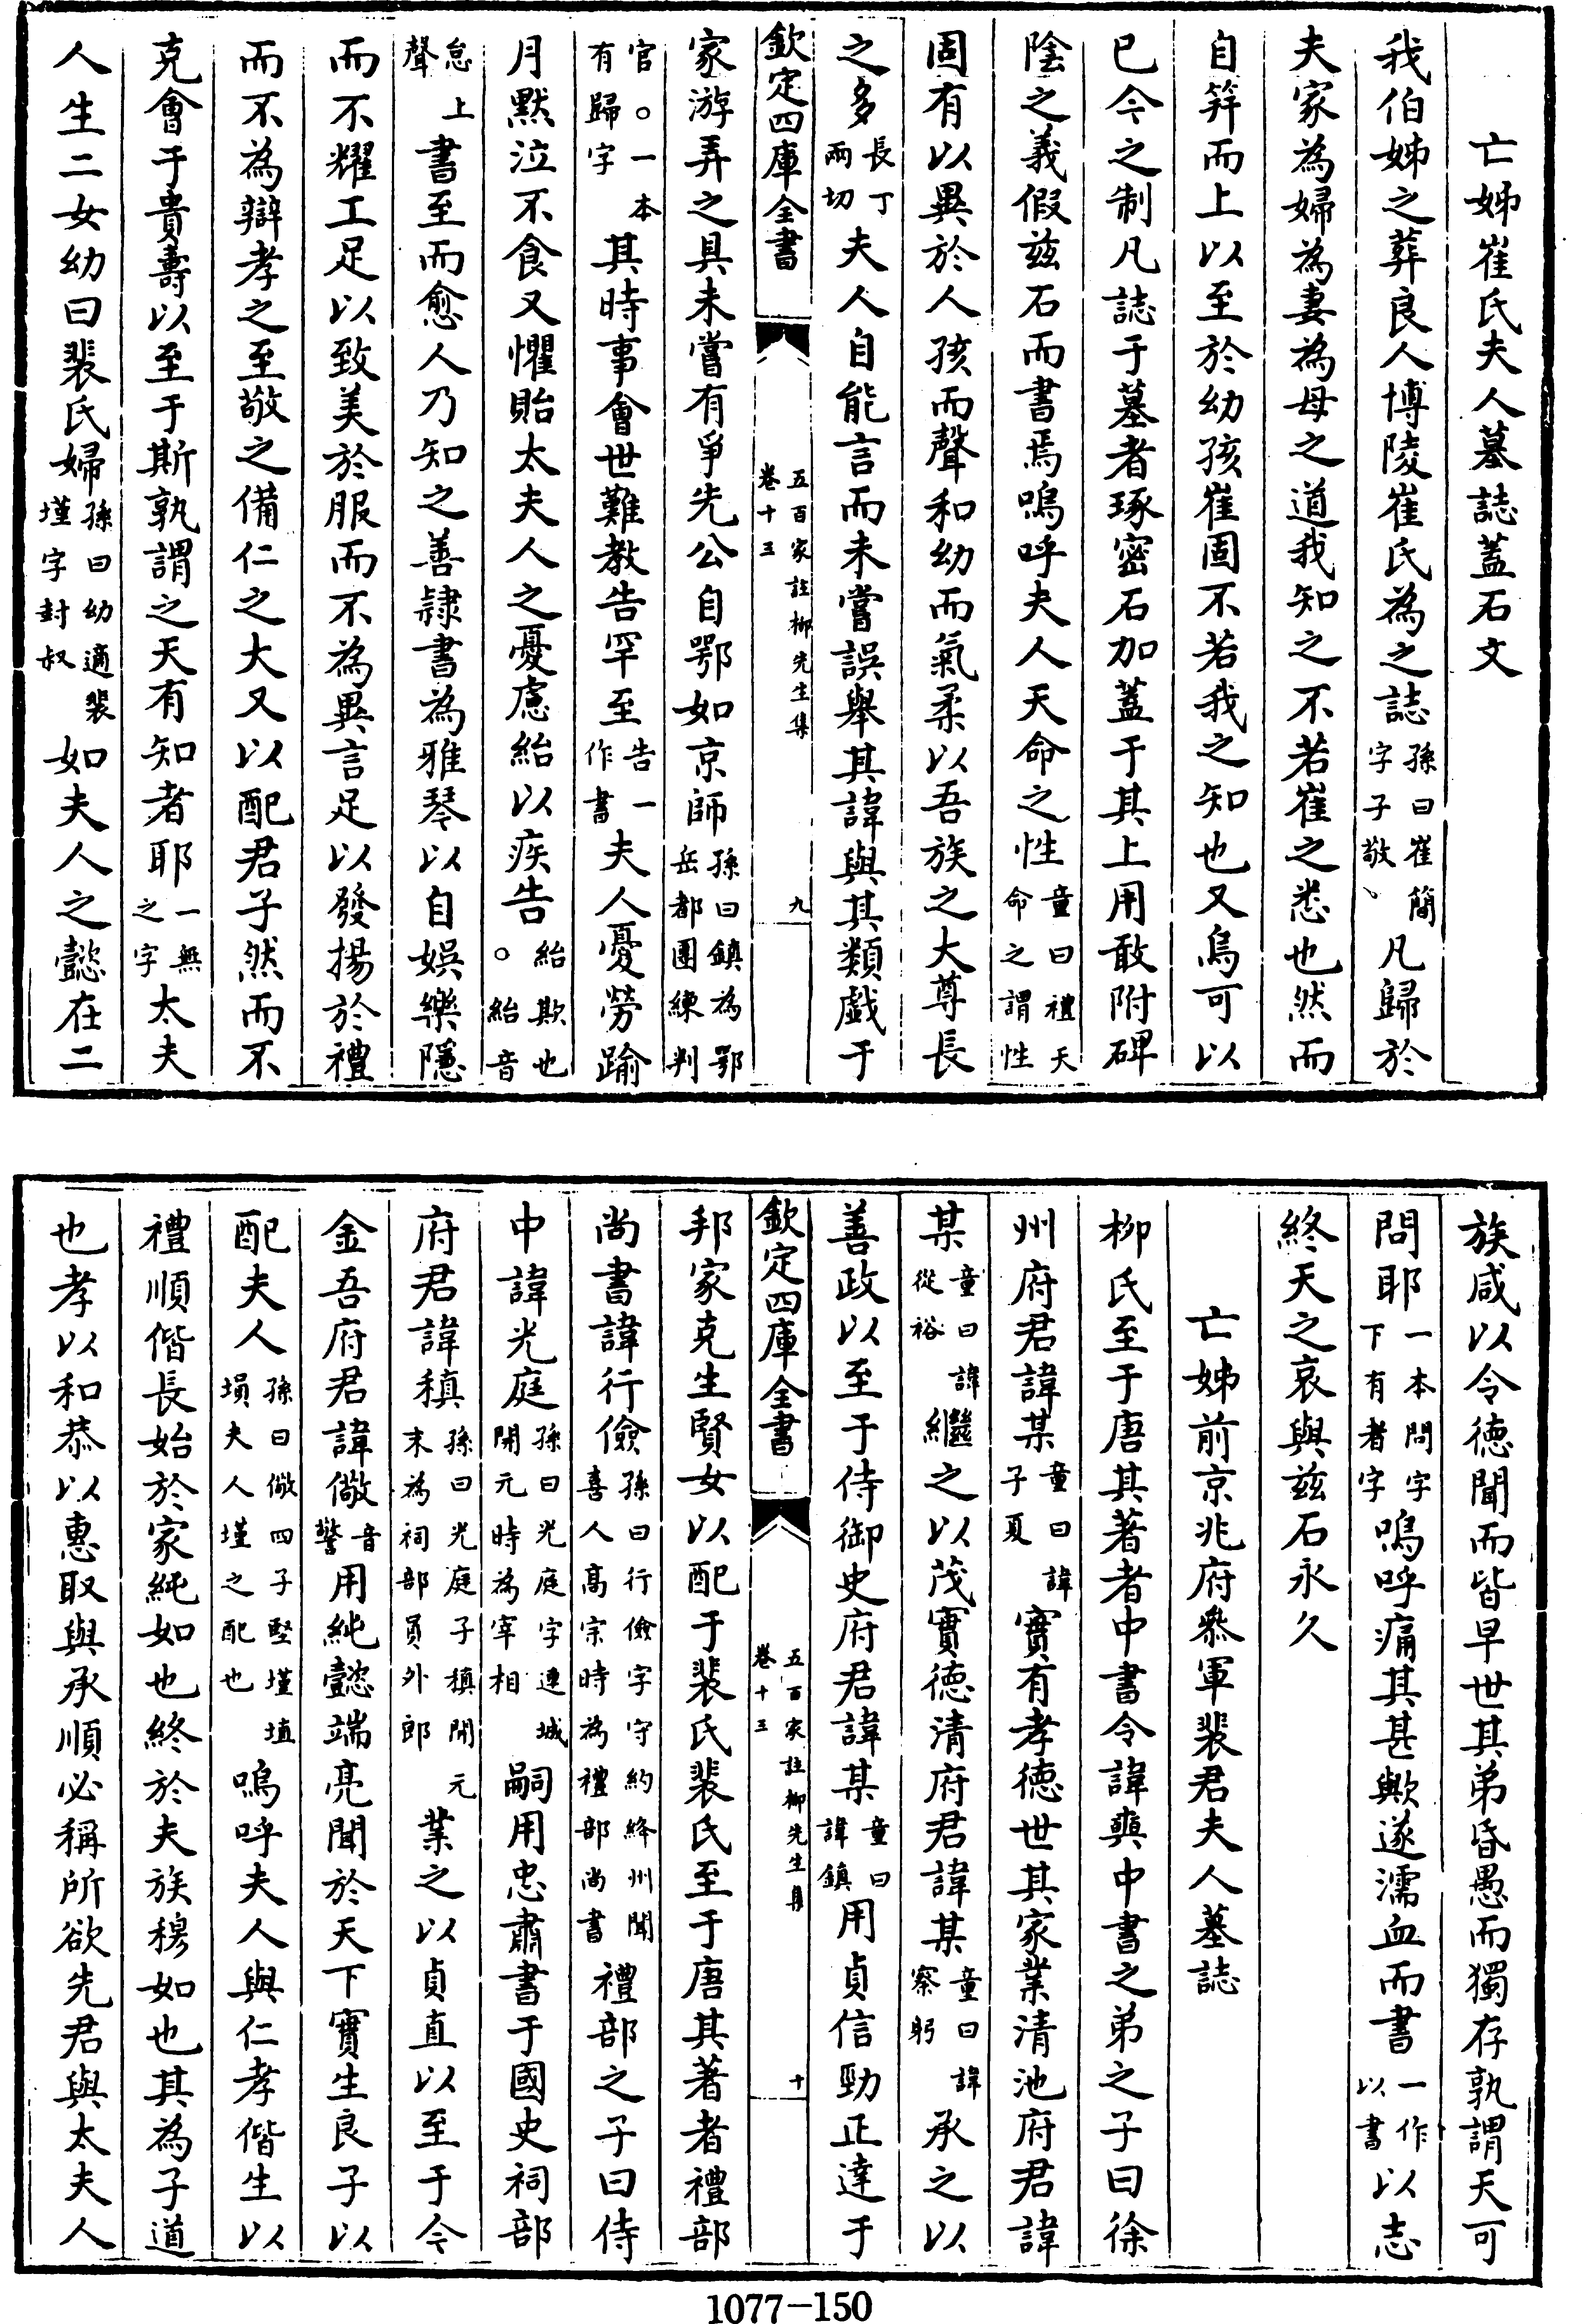 亡姊崔氏夫人墓誌蓋石文
我伯姊之葬良人博陵崔氏為之誌孫曰崔簡字子敬凡歸於
夫家為婦為妻為母之道我知之不若崔之悉也然而
自笄而上以至於幼孩崔固不若我之知也又烏可以
已今之制凡誌于墓者琢密石加蓋于其上用敢附碑
陰之義假兹石而書焉嗚呼夫人天命之性童曰禮天命之謂性
固有以異於人孩而聲和幼而氣柔以吾族之大尊長
之多長丁兩切夫人自能言而未嘗誤舉其諱與其類戲于
欽定四庫全書
五百家註柳先生集
卷十三
九
家游弄之具未嘗有爭先公自鄂如京師孫曰鎮為鄂岳都團練判
官。一本有歸字其時事會世難教告罕至告一作書夫人憂勞踰
月默泣不食又懼貽太夫人之憂慮紿以疾告紿欺也。紿音
怠上聲書至而愈人乃知之善隷書為雅琴以自娱樂隱
而不耀工足以致美於服而不為異言足以發揚於禮
而不為辯孝之至敬之備仁之大又以配君子然而不
克會于貴壽以至于斯孰謂之天有知者耶一無之字太夫
人生二女幼曰裴氏婦孫曰幼適裴墐字封叔如夫人之懿在二
族咸以令徳聞而皆早世其弟昏愚而獨存孰謂天可
問耶一本問字下有者字嗚呼痛其甚歟遂濡血而書一作以書以志
終天之哀與兹石永久
亡姊前京兆府叅軍裴君夫人墓誌
柳氏至于唐其著者中書令諱奭中書之弟之子曰徐
州府君諱某童曰諱子夏實有孝徳世其家業清池府君諱
某童曰諱從裕繼之以茂實徳清府君諱某童曰諱察躬承之以
善政以至于侍御史府君諱某童曰諱鎮用貞信勁正達于
欽定四庫全書
五百家註柳先生集
卷十三
十
邦家克生賢女以配于裴氏裴氏至于唐其著者禮部
尚書諱行儉孫曰行儉字守約絳州聞喜人高宗時為禮部尚書禮部之子曰侍
中諱光庭孫曰光庭字連城開元時為宰相嗣用忠肅書于國史祠部
府君諱稹孫曰光庭子稹開元末為祠部員外郎業之以貞直以至于今
金吾府君諱儆音警用純懿端亮聞於天下實生良子以
配夫人孫曰儆四子堅墐埴塤夫人墐之配也嗚呼夫人與仁孝偕生以
禮順偕長始於家純如也終於夫族穆如也其為子道
也孝以和恭以惠取與承順必稱所欲先君與太夫人
1077-150